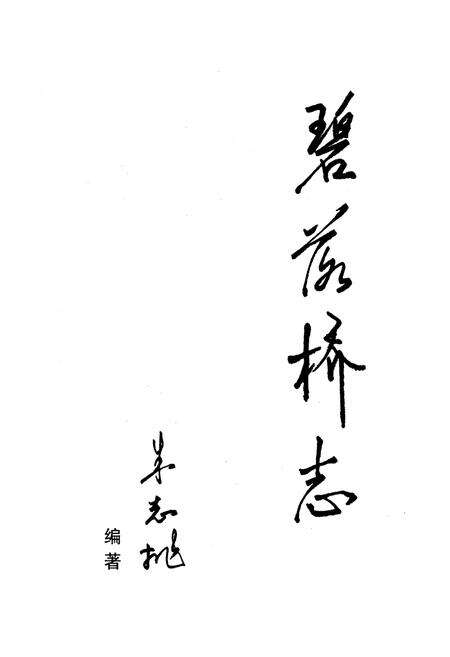 碧落桥志
朱志挑
编著